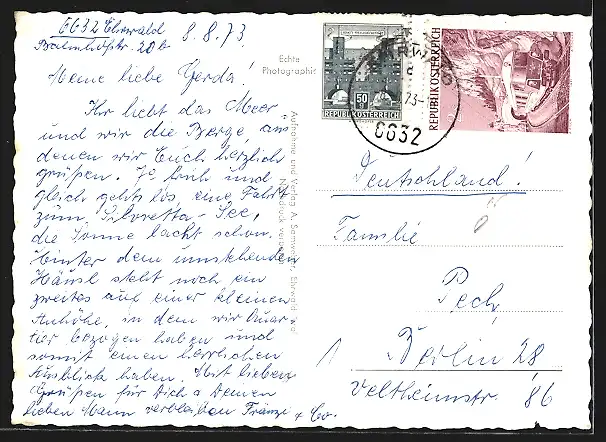 6632 Ehrwald 8.8.73
Bahnhofstr. 20b
Meine liebe Gerda!
Ihr liebt das Meer
und wir die Berge, aus
denen wir Euch herzlich
grüßen. Je und
gleich gehts los, eine Fahrt
zum Silvretta-See,
die Sonne lacht schon.
Hinter dem umstehenden
Häusl steht noch ein
zweites auf einer kleinen
Anhöhe, in dem wir Quar-
tier bezogen haben und
somit einen herrlichen
Ausblick haben. Mit lieben
Grüßen für Dich u Deinen
lieben Mann verbleiben Fränze + Co.
Echte
Photographie
Aufnahme und Verlag A. Ehrwald, Tirol
Nachdruck verboten
50
REPUBLIK ÖSTERREICH
REPUBLIK ÖSTERREICH
6632
Deutschland!
Familie
Pech
1 Berlin 28
Veltheimstr. 86